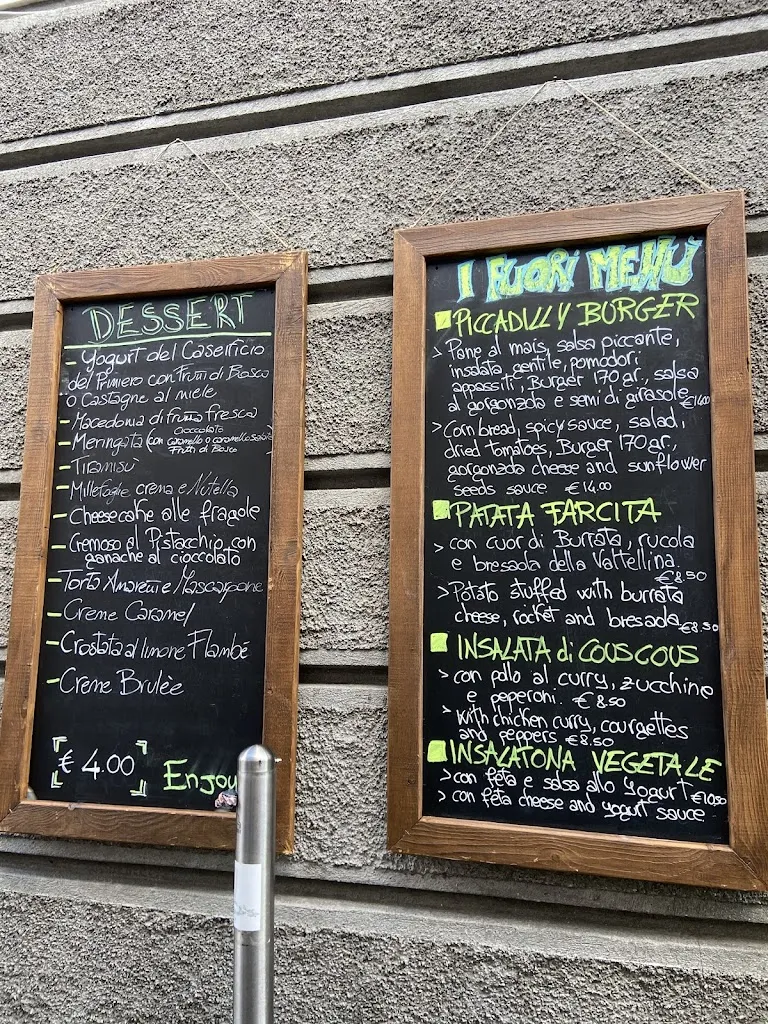 DESSERT
- Yogurt del Caseificio
del Primiero con Frutti di Bosco
o Castagne al miele
- Macedonia di frutta fresca
- Meringata (con cioccolato o caramello salato
Frutti di Bosco
- Tiramisù
- Millefoglie crema e Nutella
- Cheesecake alle fragole
- Cremoso al Pistacchio con
ganache al cioccolato
- Torta Amaretti e Mascarpone
- Creme Caramel
- Crostata al limone Flambé
- Creme Brulèe
€ 4.00
Enjoy
I FUORI MENÙ
PICCADILLY BURGER
> Pane al mais, salsa piccante,
insalata gentile, pomodori
appassiti, Burger 170 gr., salsa
al gorgonzola e semi di girasole
> Corn bread, spicy sauce, salad,
dried tomatoes, Burger 170 gr.,
gorgonzola cheese and sunflower
seeds sauce € 14.00
PATATA FARCITA
> con cuor di Burrata, rucola
e bresaola della Valtellina.
€ 8.50
> Potato stuffed with burrata
cheese, rocket and bresaola €8.50
INSALATA di COUS COUS
> con pollo al curry, zucchine
e peperoni. € 8.50
> with chicken curry, courgettes
and peppers €8.50
INSALATONA VEGETALE
> con feta e salsa allo yogurt €10.50
> con feta cheese and yogurt sauce